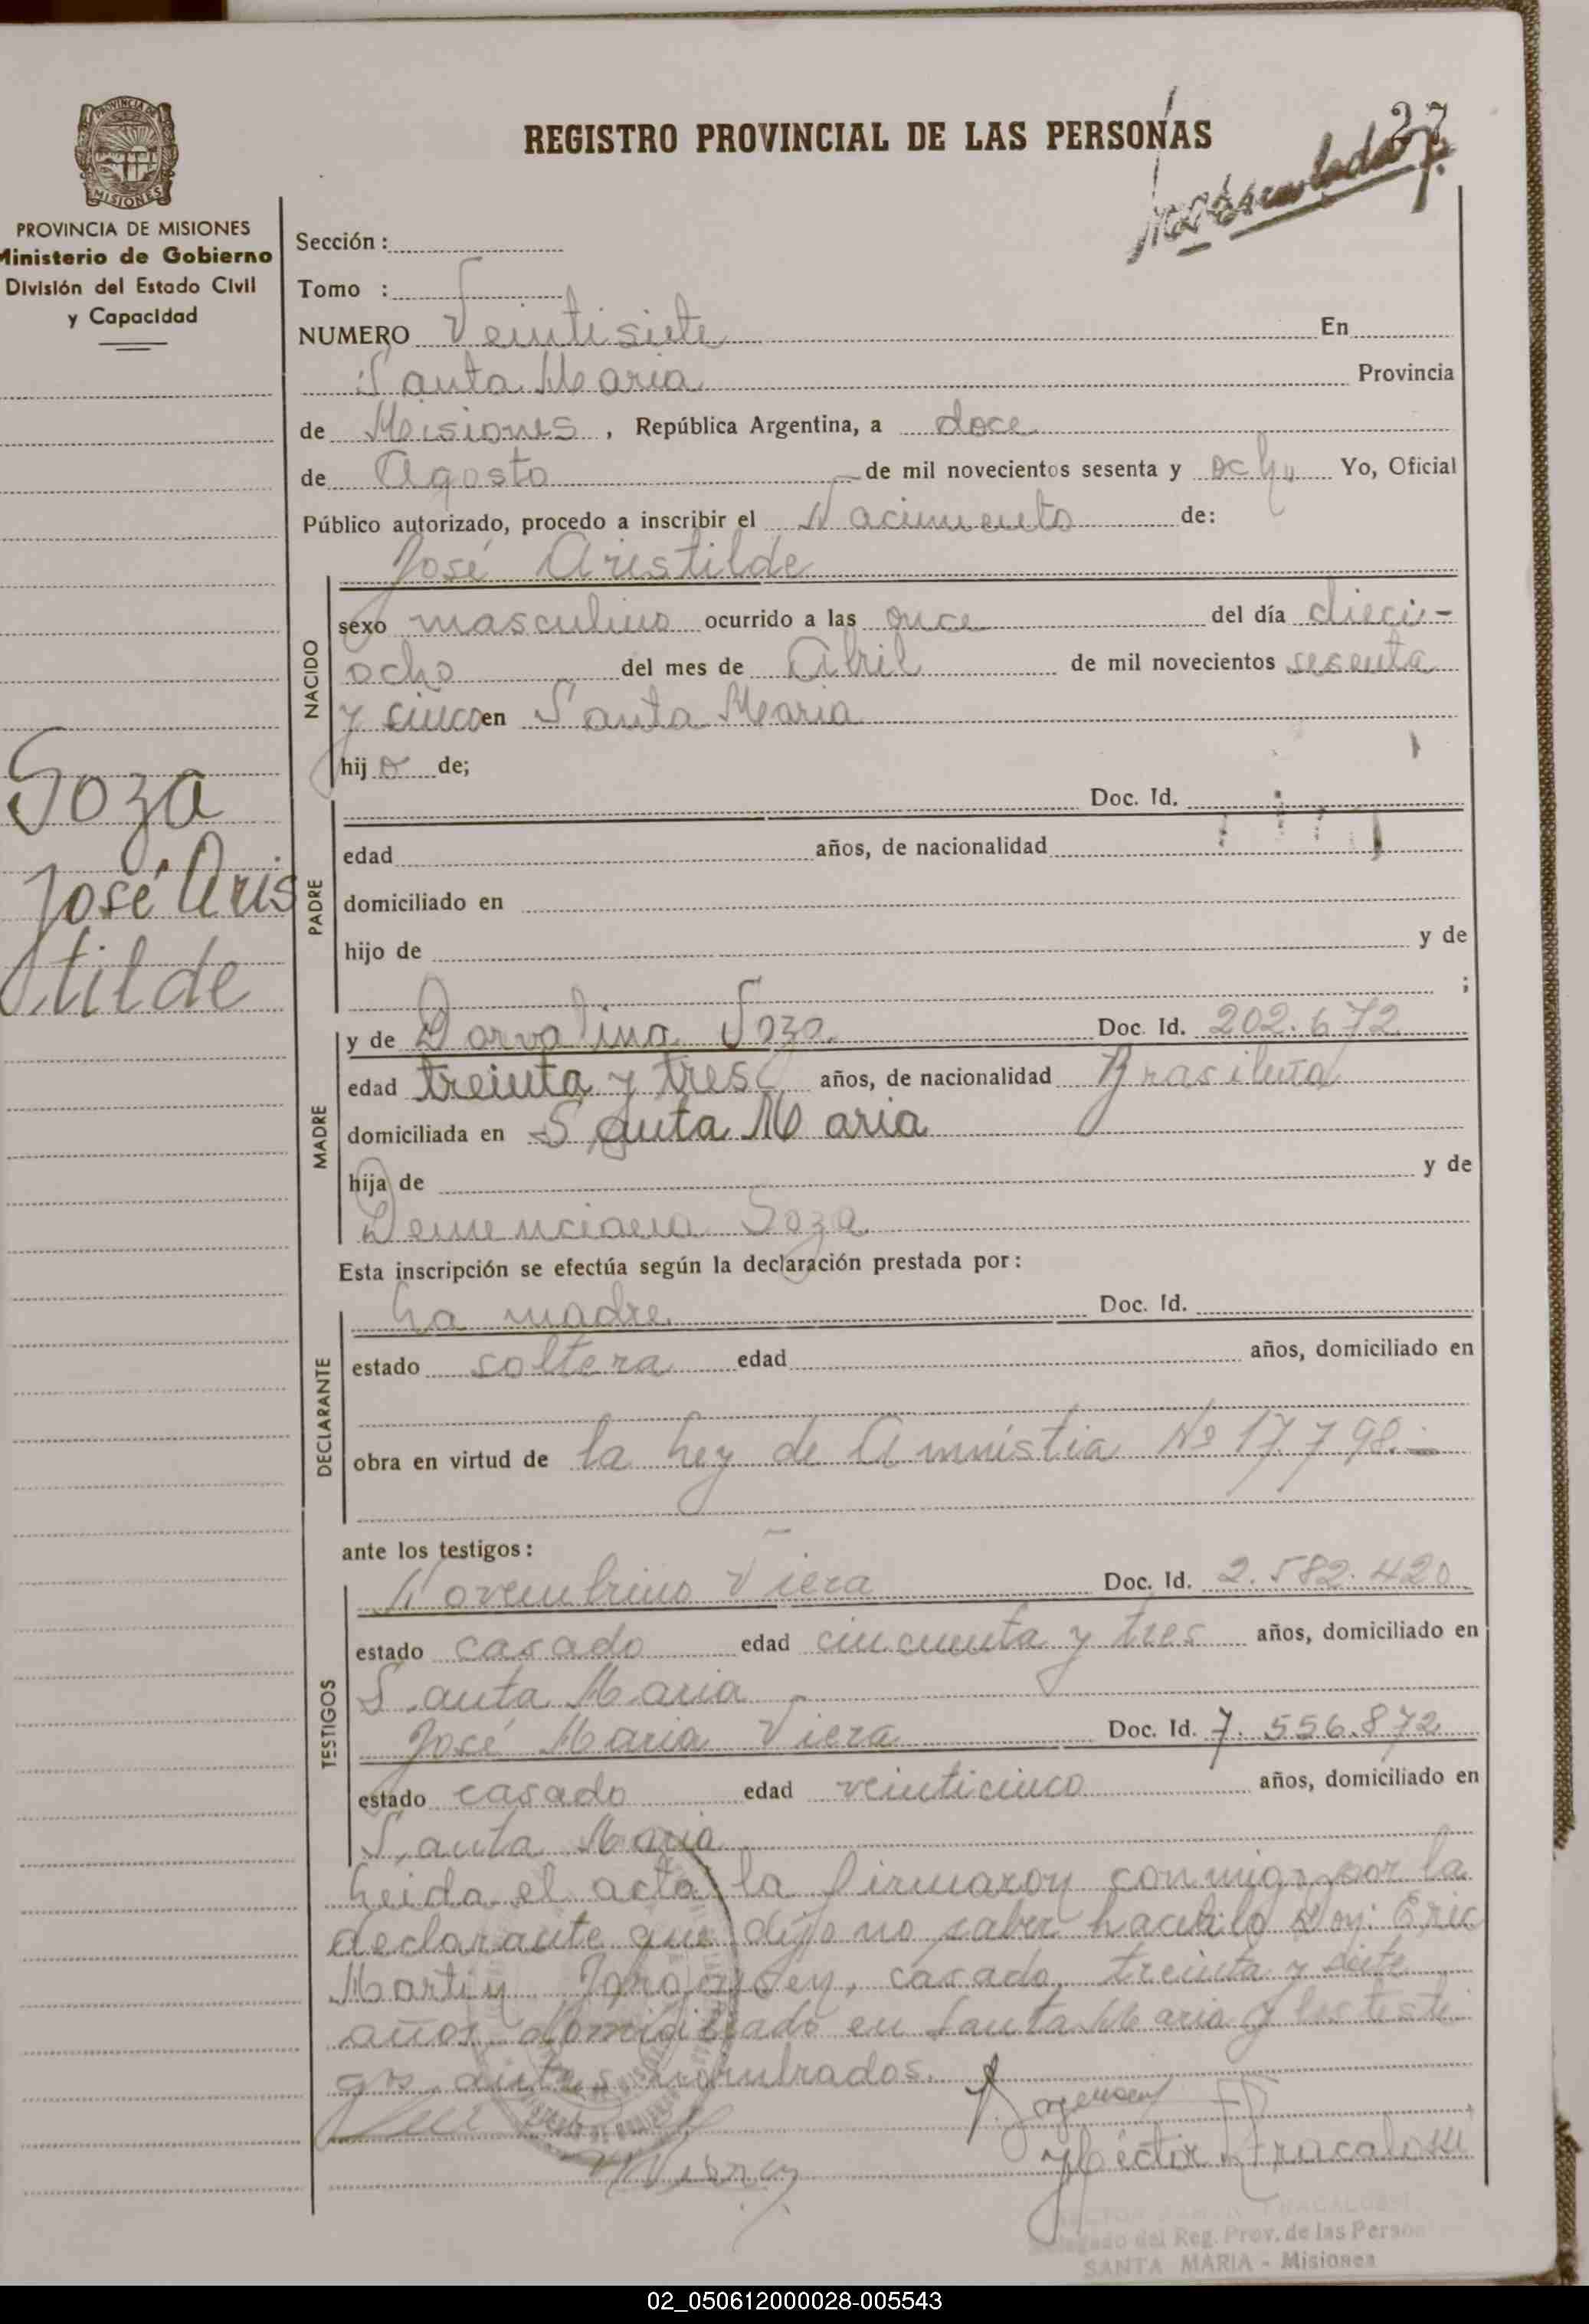 27
REGISTRO PROVINCIAL DE LAS PERSONAS
PROVINCIA DE
MISIONES
PROVINCIA DE MISIONES
Ministerio de Gobierno
División del Estado Civil
y Capacidad
Sección :
Tomo :
NUMERO Veintisiete En
Santa Maria Provincia
de Misiones , República Argentina, a doce
de Agosto de mil novecientos sesenta y ocho Yo, Oficial
Público autorizado, procedo a inscribir el Nacimiento de:
José Aristilde
NACIDO
sexo masculino ocurrido a las once del día dieci-
ocho del mes de Abril de mil novecientos sesenta
y cinco en Santa Maria
hijo de;
Soza
José Aris
tilde
PADRE
Doc. Id.
edad años, de nacionalidad
domiciliado en
hijo de y de
;
MADRE
y de Dorvalina Soza Doc. Id. 202.672
edad treinta y tres años, de nacionalidad Brasileña
domiciliada en Santa Maria
hija de y de
Soza
Esta inscripción se efectúa según la declaración prestada por :
DECLARANTE
La madre Doc. Id.
estado soltera edad años, domiciliado en
obra en virtud de la Ley de Amnistia Nº 17.798.-
ante los testigos :
TESTIGOS
Novembrino Viera Doc. Id. 2.582.420
estado casado edad cincuenta y tres años, domiciliado en
Santa Maria
José Maria Viera Doc. Id. 7.556.872
estado casado edad veinticinco años, domiciliado en
Santa Maria
Leida el acta la firmaron conmigo por la
declarante que dijo no saber hacerlo Don: Eric
Martin Jorgensen, casado, treinta y siete
años domiciliado en Santa Maria y los testi
gos antes nombrados.
Jorgensen
Héctor Fracalossi
Delegado del Reg. Prov. de las Personas
SANTA MARIA - Misiones
02_050612000028-005543